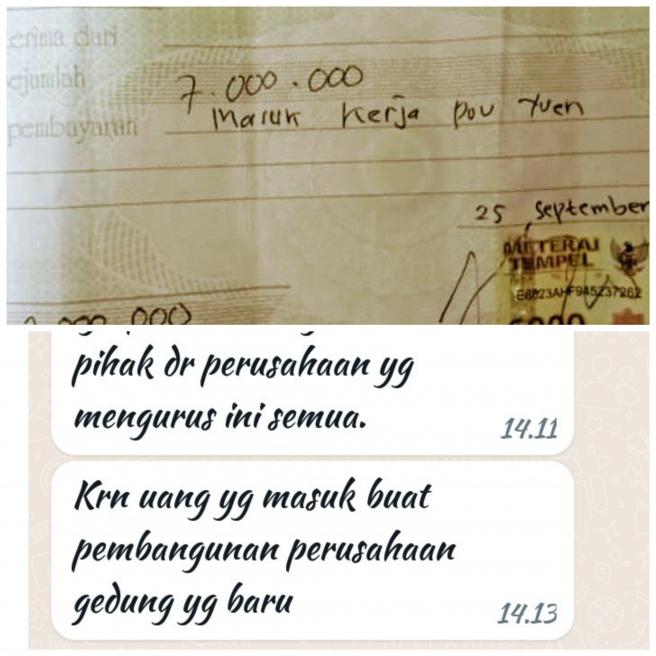 erima dari
ejumlah
7.000.000
pembayaran
masuk kerja pou yuen
25 September
METERAI
TEMPEL
E6823AHF945237262
000 000
pihak dr perusahaan yg
mengurus ini semua.
14.11
Krn uang yg masuk buat
pembangunan perusahaan
gedung yg baru
14.13